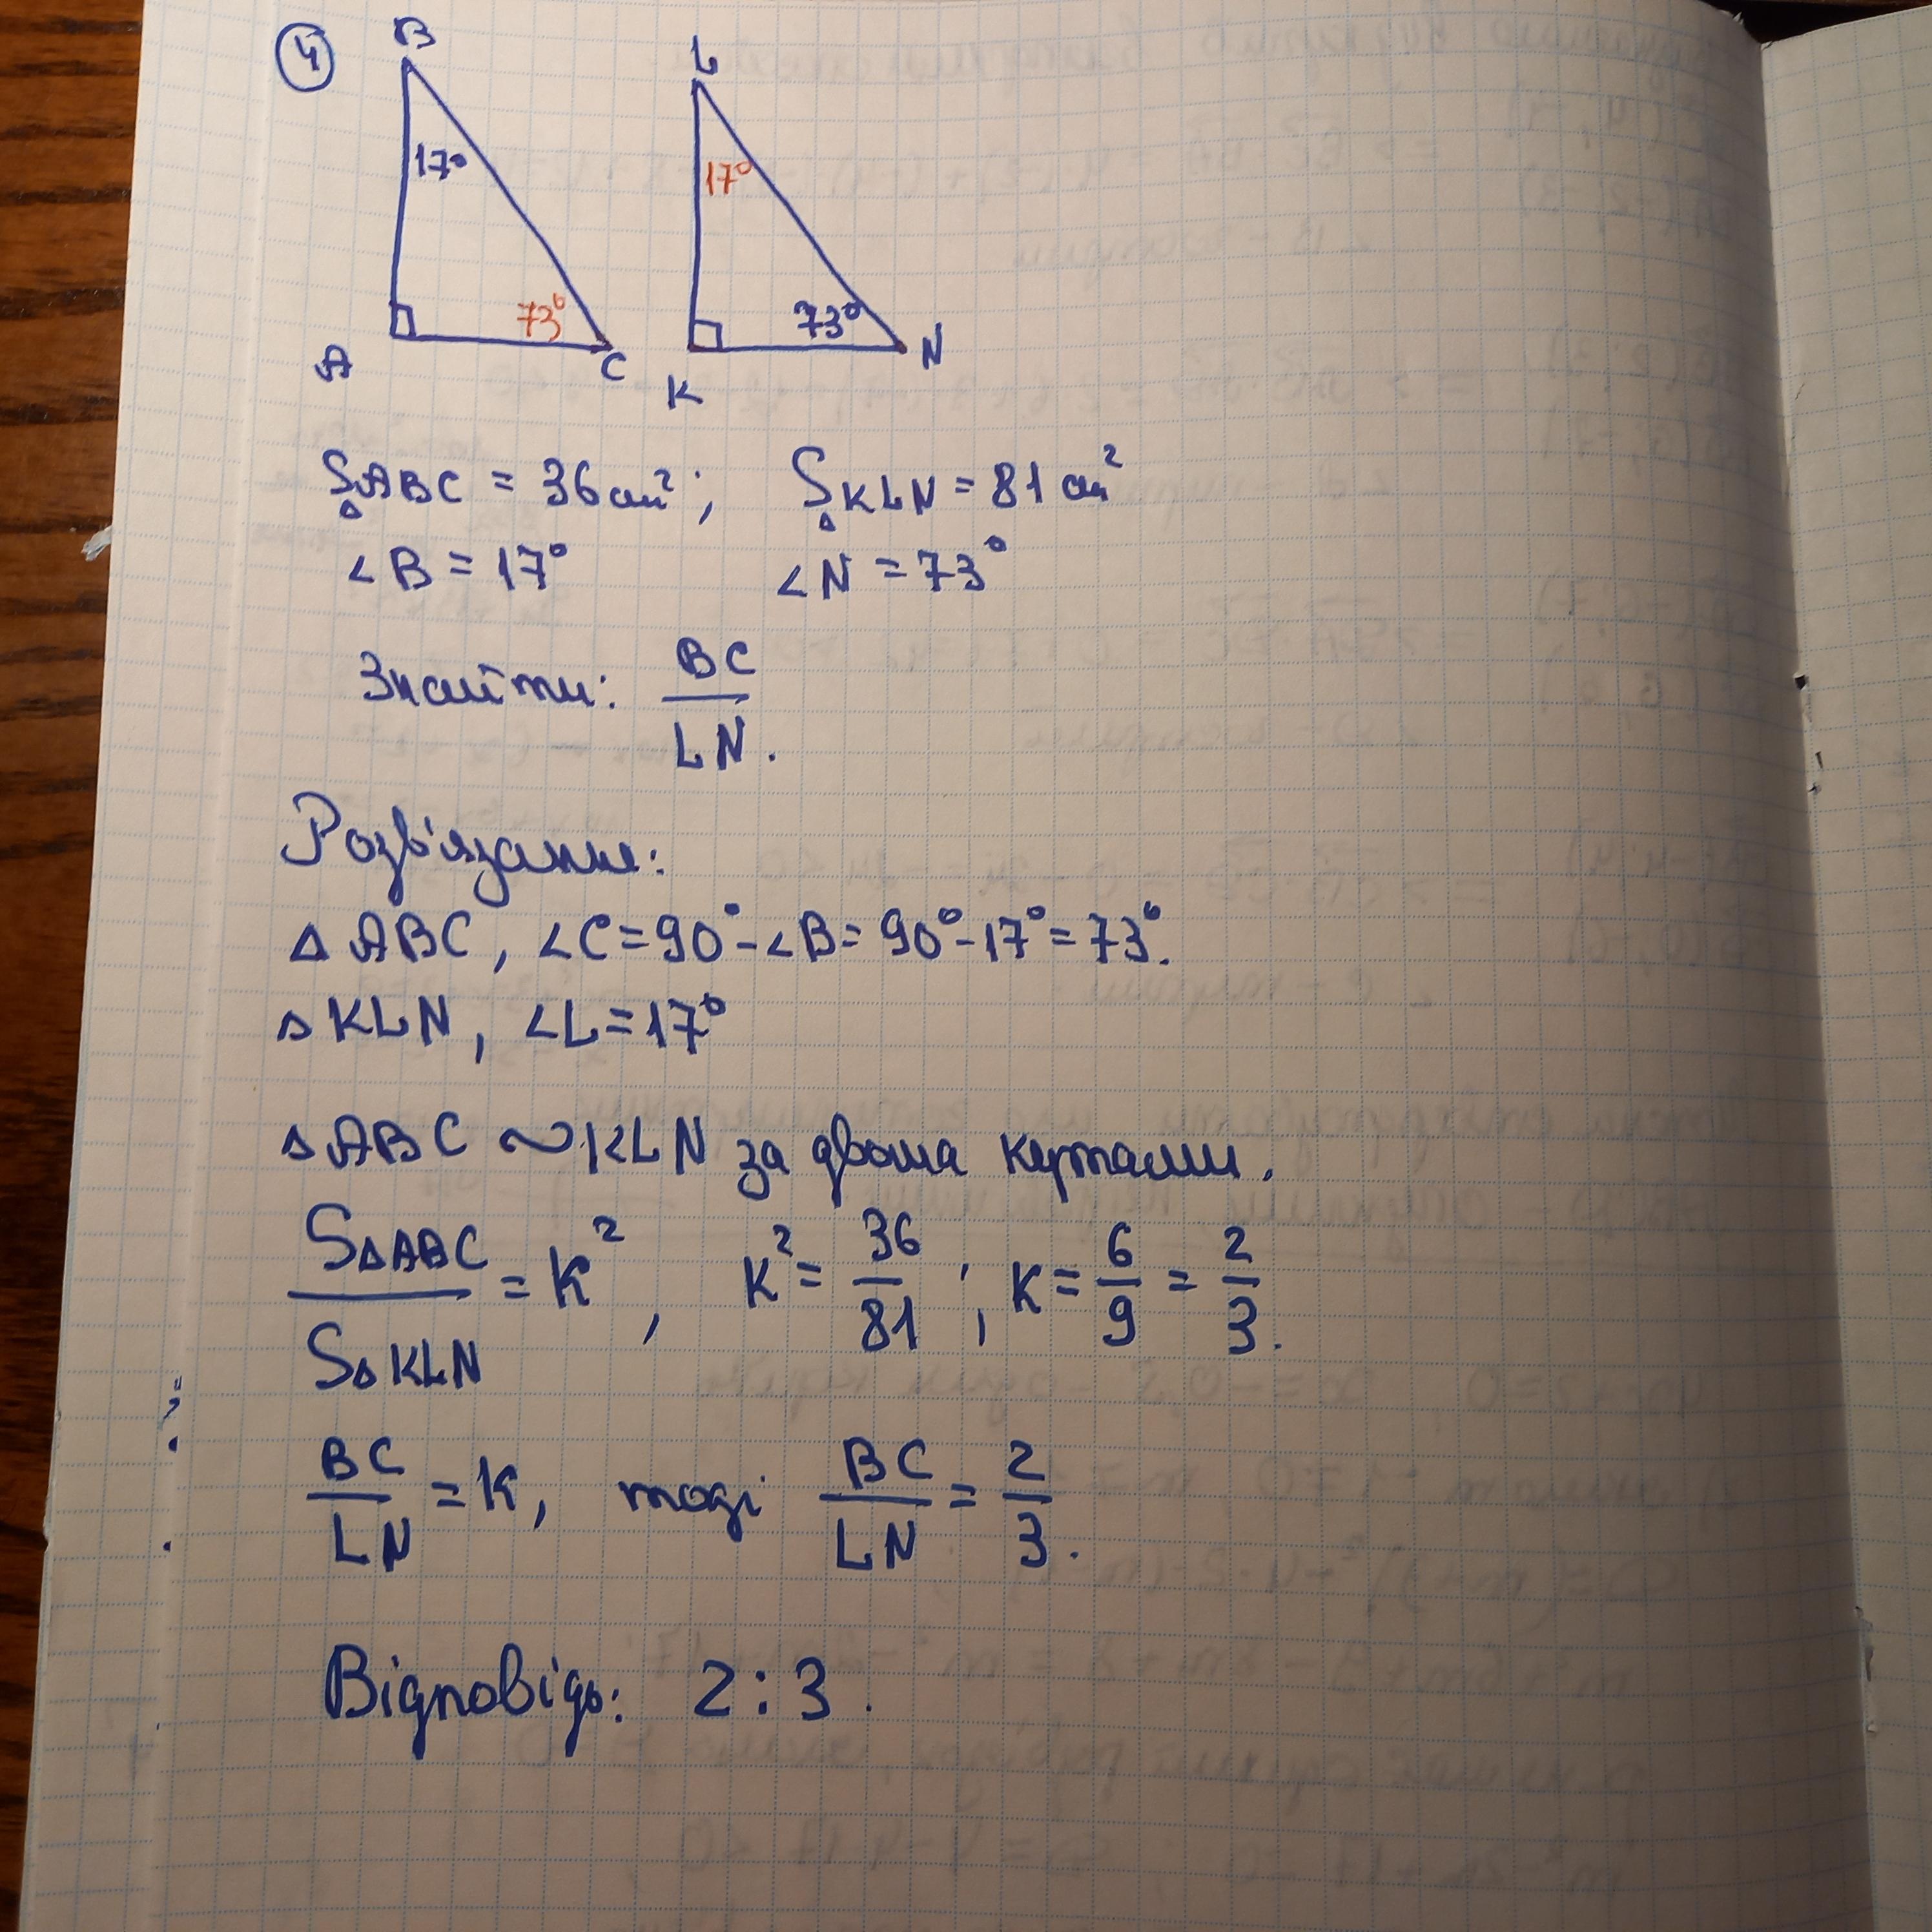 4
B
L
17° 17°
73° 73°
A C K N
S△ABC = 36 см²; S△KLN = 81 см²
∠B = 17° ∠N = 73°
Знайти: BC/LN.
Розв'язання:
△ABC, ∠C = 90° - ∠B = 90° - 17° = 73°.
△KLN, ∠L = 17°
△ABC ~ KLN за двома кутами.
S△ABC/S△KLN = K², K² = 36/81; K = 6/9 = 2/3.
BC/LN = K, тоді BC/LN = 2/3.
Відповідь: 2:3.